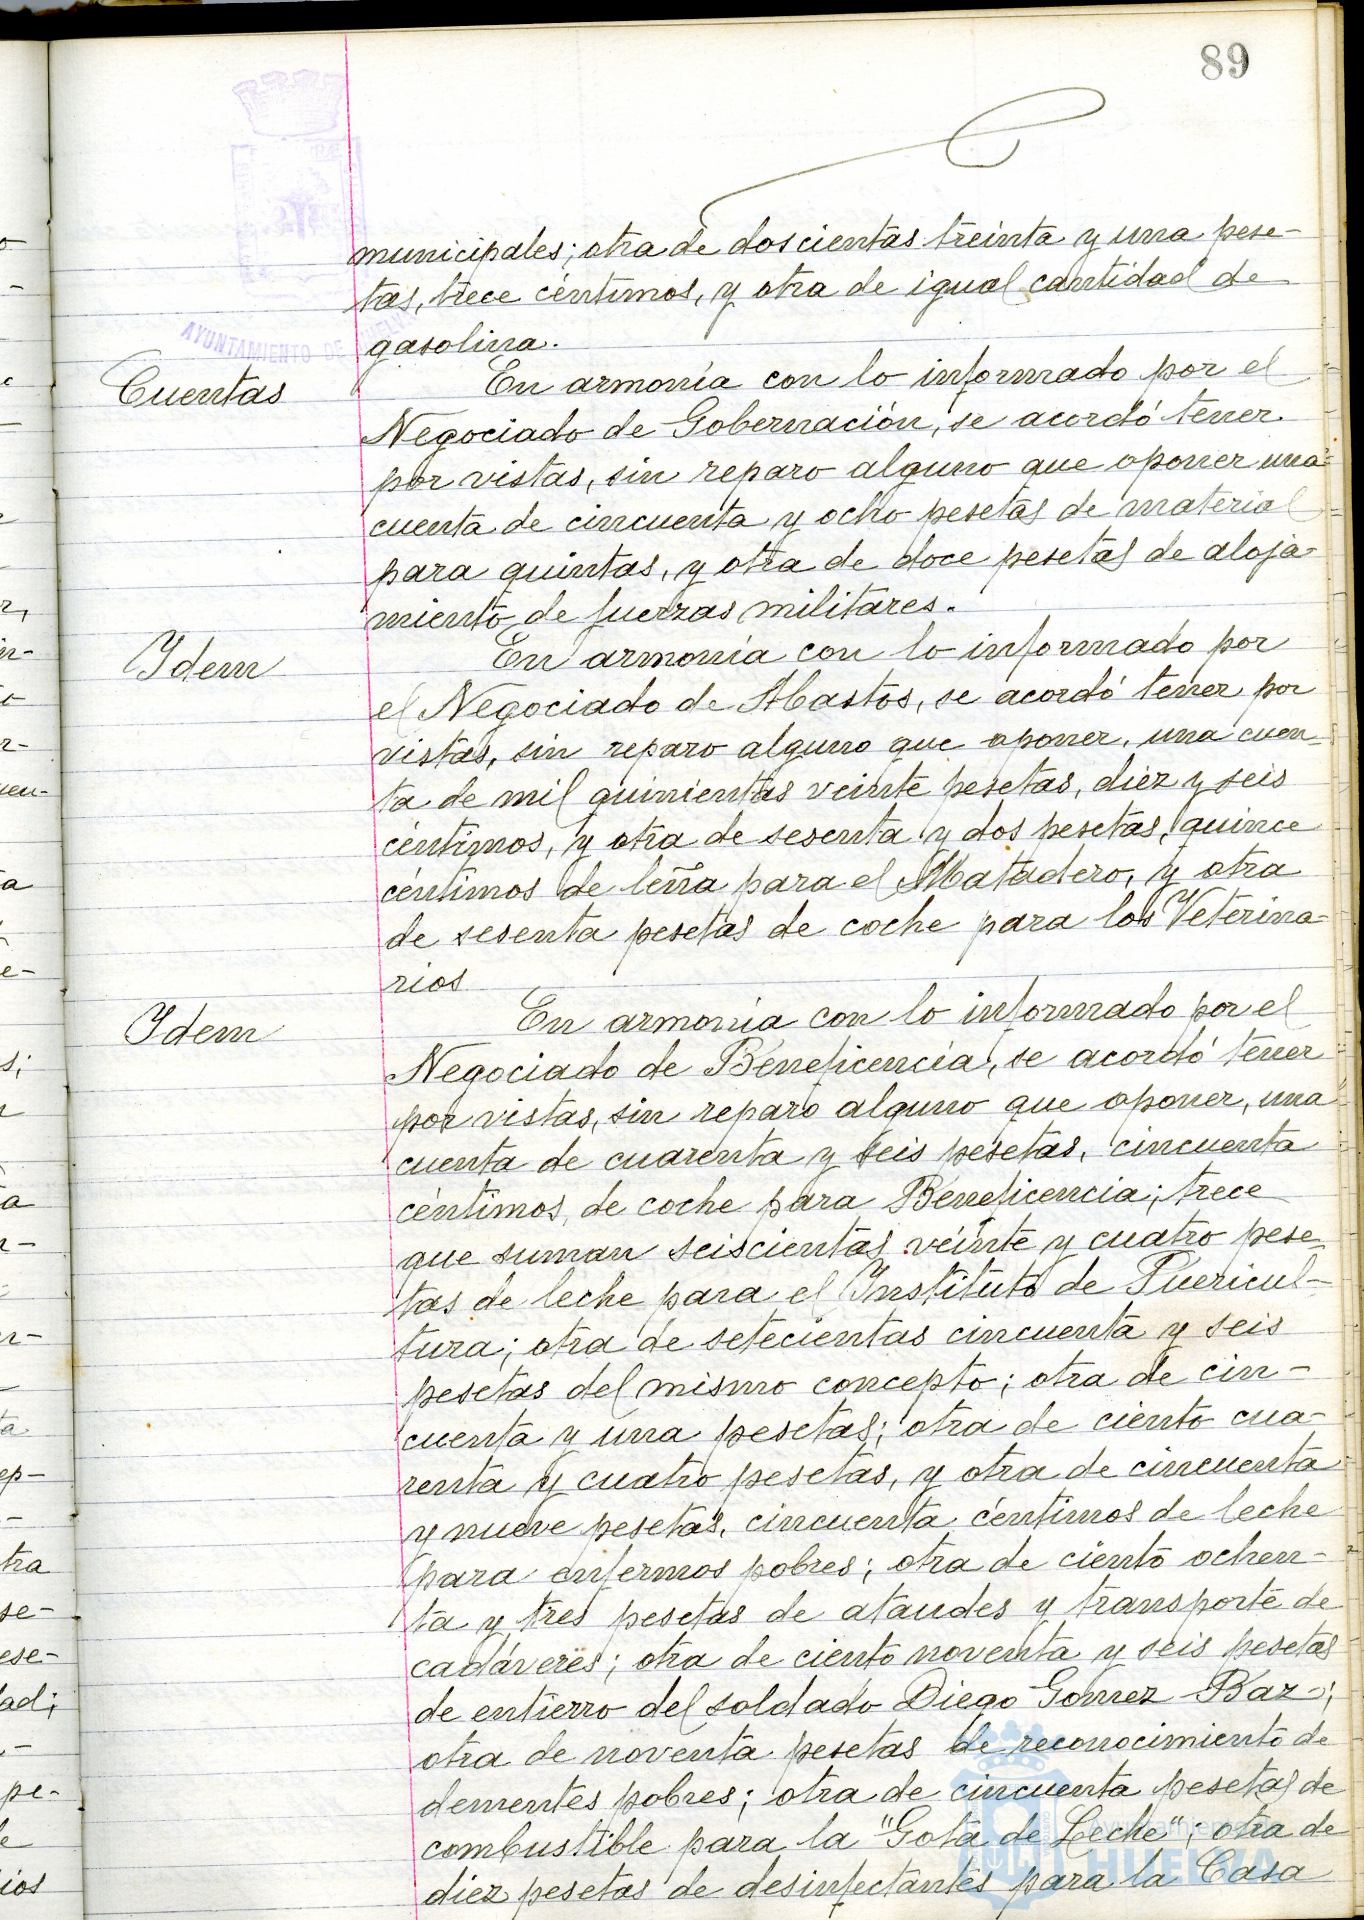 89
municipales; otra de doscientas treinta y una pese-
tas, trece céntimos, y otra de igual cantidad de
gasolina.
AYUNTAMIENTO DE HUELVA
Cuentas En armonía con lo informado por el
Negociado de Gobernación, se acordó tener
por vistas, sin reparo alguno que oponer una
cuenta de cincuenta y ocho pesetas de material
para quintas, y otra de doce pesetas de aloja-
miento de fuerzas militares.
Idem En armonía con lo informado por
el Negociado de Abastos, se acordó tener por
vistas, sin reparo alguno que oponer, una cuen-
ta de mil quinientas veinte pesetas, diez y seis
céntimos, y otra de sesenta y dos pesetas, quince
céntimos de leña para el Matadero, y otra
de sesenta pesetas de coche para los Veterina-
rios
Idem En armonía con lo informado por el
Negociado de Beneficencia, se acordó tener
por vistas, sin reparo alguno que oponer, una
cuenta de cuarenta y seis pesetas, cincuenta
céntimos, de coche para Beneficencia; trece
que suman seiscientas veinte y cuatro pese-
tas de leche para el Instituto de Puericul-
tura; otra de setecientas cincuenta y seis
pesetas del mismo concepto; otra de cin-
cuenta y una pesetas; otra de ciento cua-
renta y cuatro pesetas, y otra de cincuenta
y nueve pesetas, cincuenta céntimos de leche
para enfermos pobres; otra de ciento ochen-
ta y tres pesetas de ataudes y transporte de
cadáveres; otra de ciento noventa y seis pesetas
de entierro del soldado Diego Gomez Baz;
otra de noventa pesetas de reconocimiento de
dementes pobres; otra de cincuenta pesetas de
combustible para la "Gota de Leche"; otra de
diez pesetas de desinfectantes para la Casa
Ayuntamiento
HUELVA